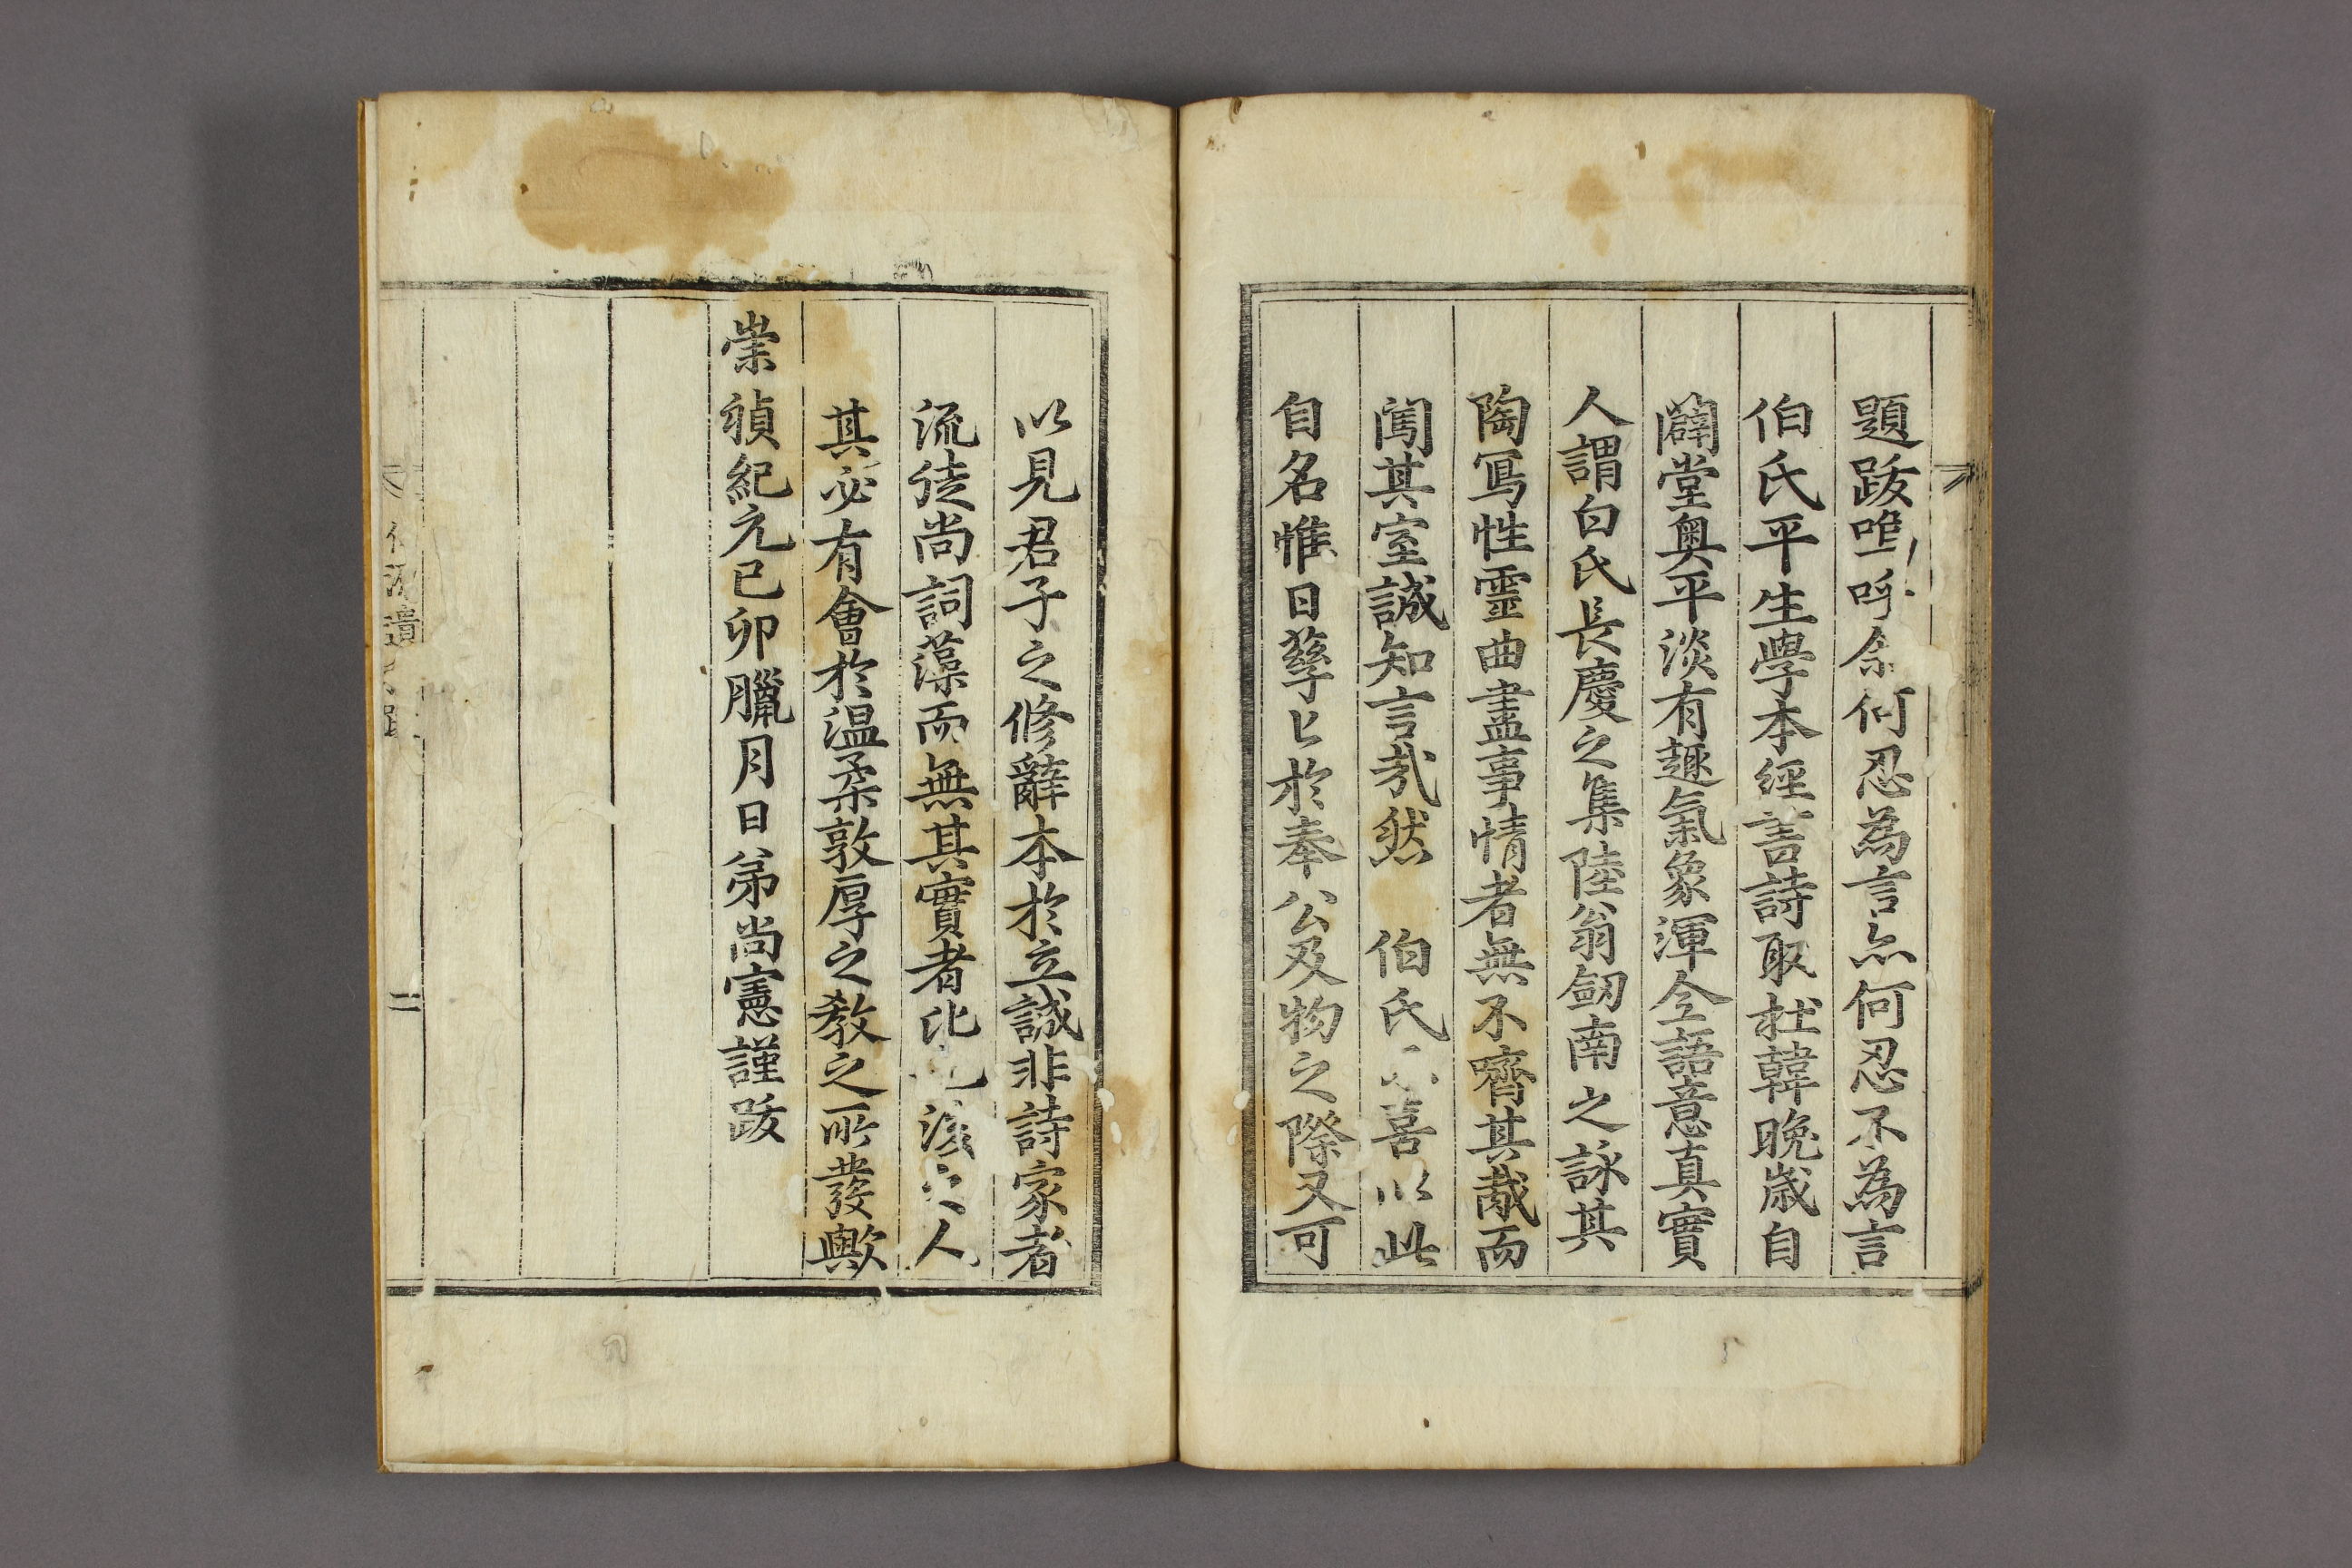 題跋嗚呼余何忍為言亦何忍不為言
伯氏平生學本經詩取杜韓晚歲自
闢堂奧平淡有趣氣象渾全語意真實
人謂白氏長慶之集陸翁劒南之詠其
陶寫性靈曲盡事情者無不嚌其胾而
闖其室誠知言哉然 伯氏喜以此
自名惟日孳〻於奉公及物之際又可
以見君子之修辭本於立誠非詩家者
流徒尚詞藻而無其實者比人
其必有會於温柔敦厚之教之所發歟
崇禎紀元己卯臘月日弟尚憲謹跋
遺
二